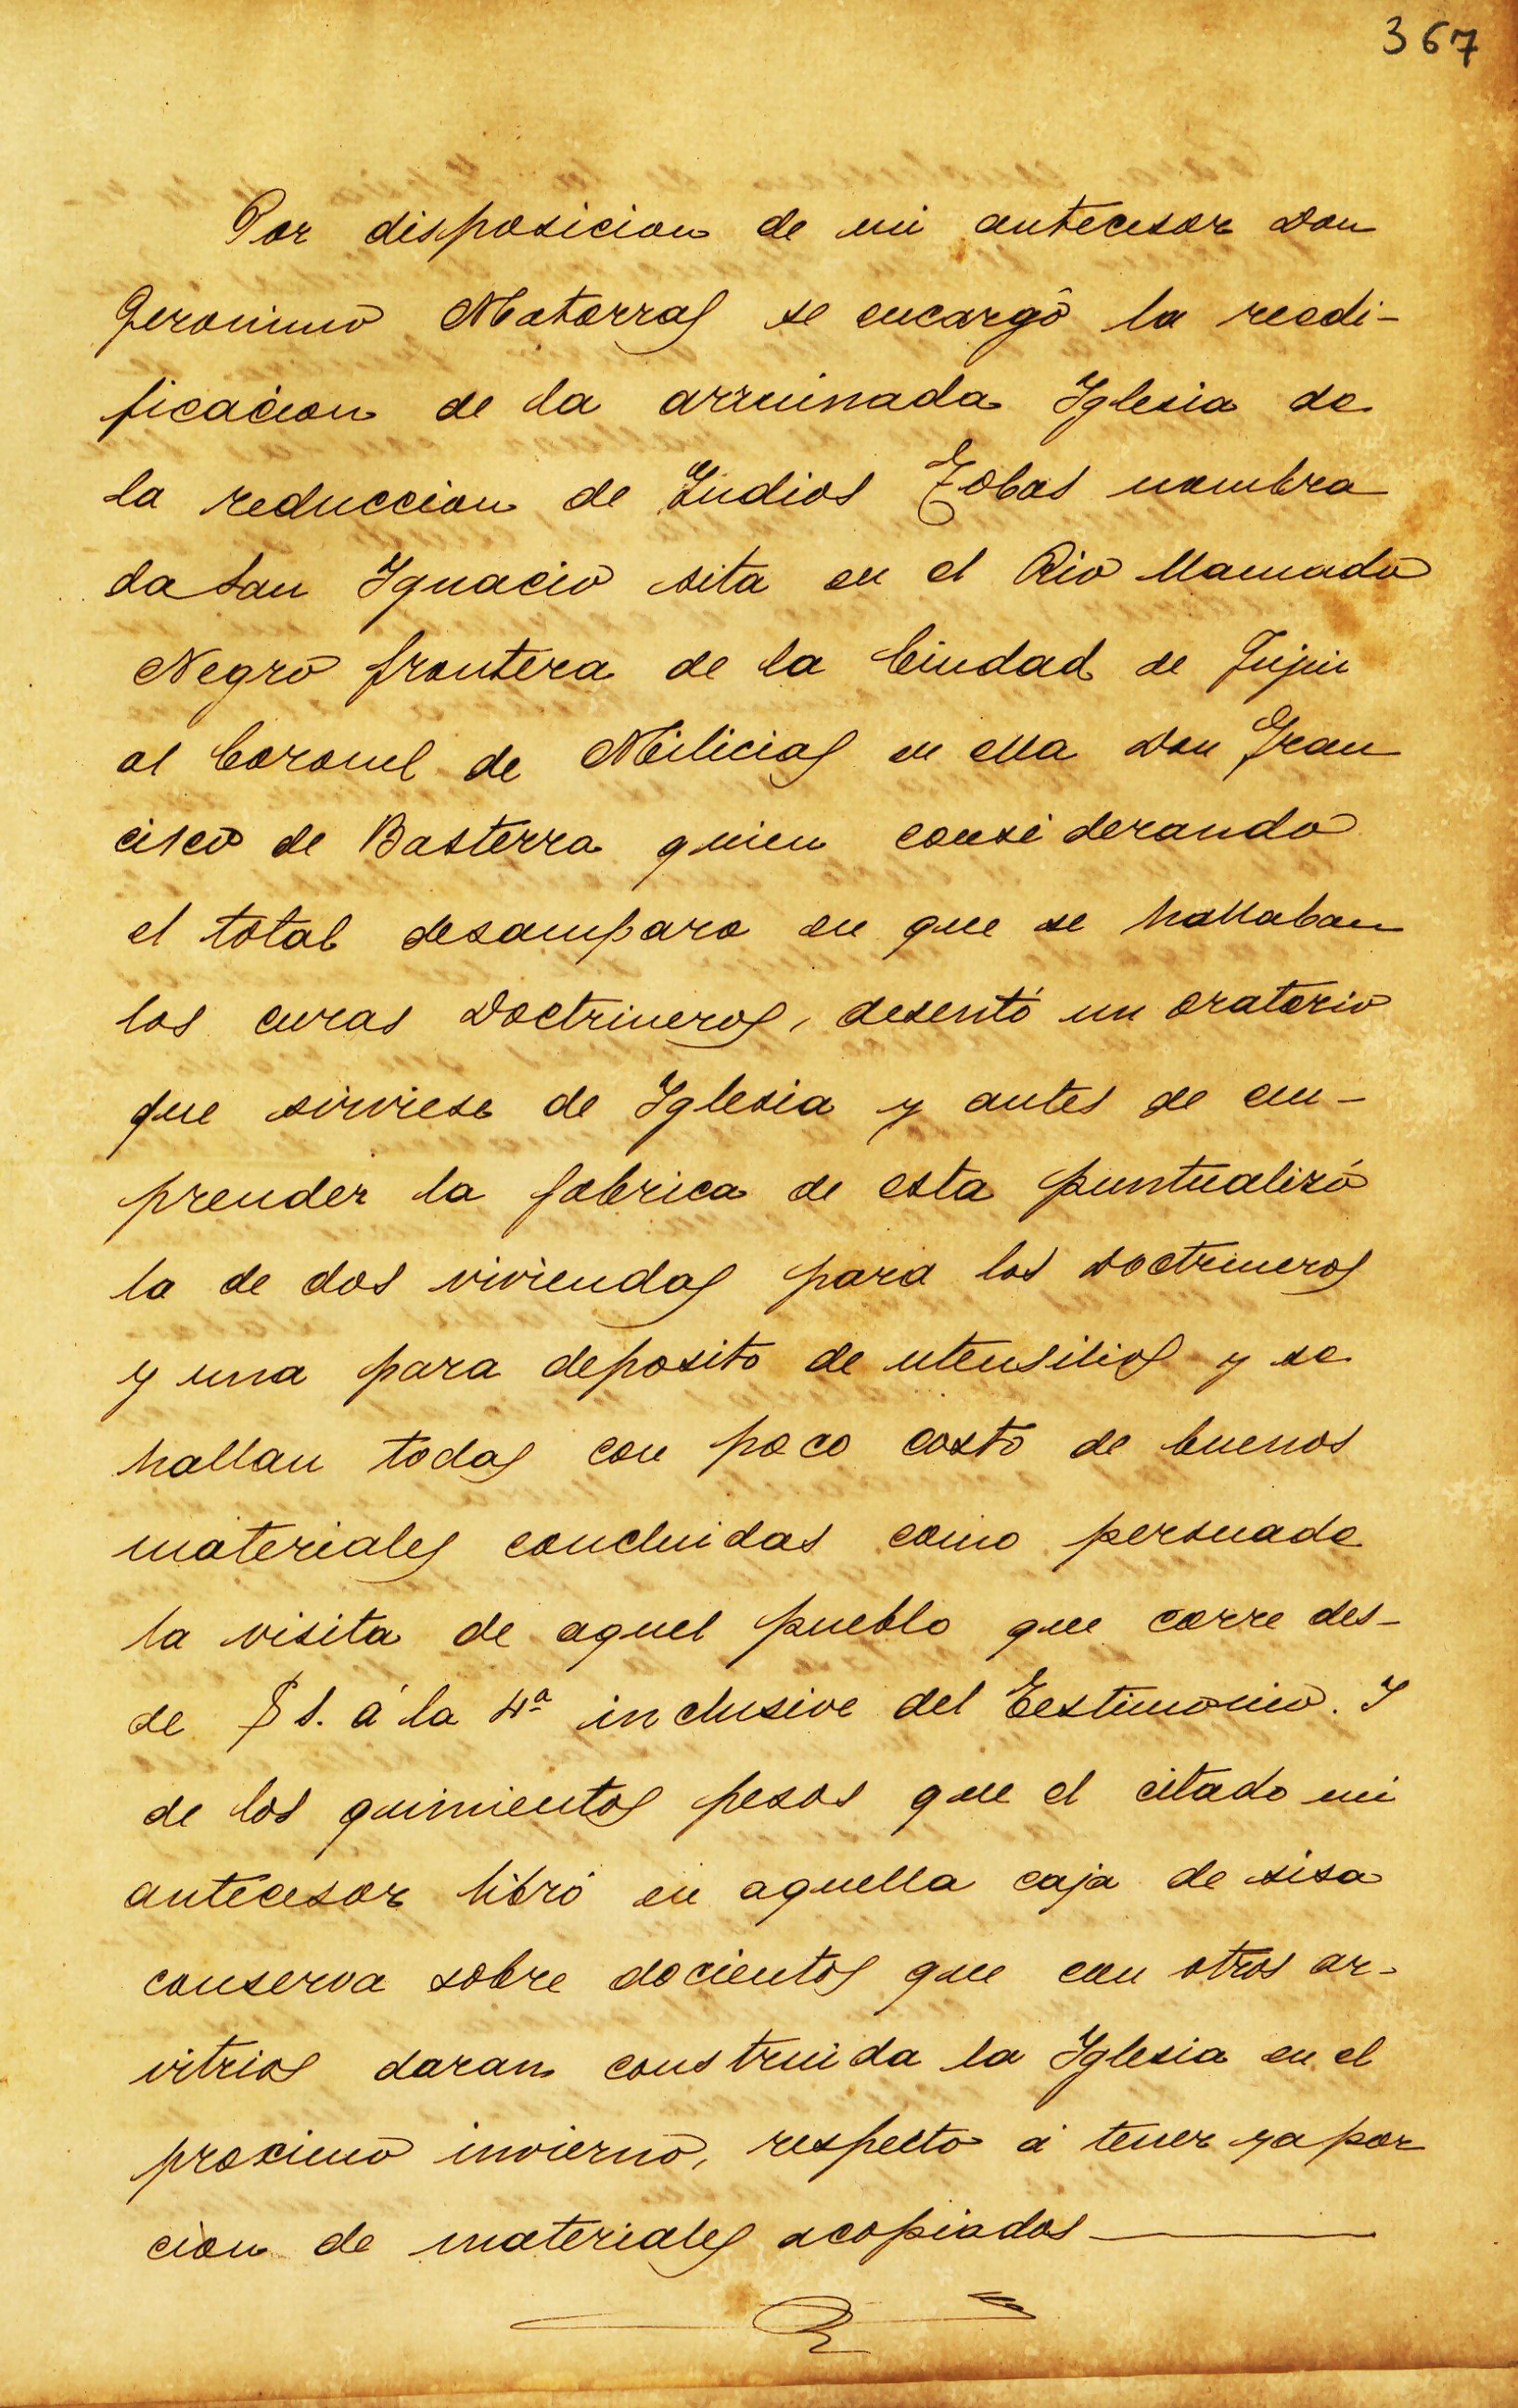 367
Por disposicion de mi antecesor Don
Geronimo Matorras se encargó la reedi-
ficacion de la arruinada Iglesia de
la reduccion de Indios Tobas nombra
da San Ignacio sita en el Rio llamado
Negro frontera de la Ciudad de Jujui
al Coronel de Milicias en ella Don Fran
cisco de Basterra quien considerando
el total desamparo en que se hallaban
los curas Doctrineros, desentó un oratorio
que sirviese de Iglesia y antes de em-
prender la fabrica de esta puntualizó
la de dos viviendas para los Doctrineros
y una para deposito de utensilios y se
hallan todas con poco costo de buenos
materiales concluidas como persuade
la visita de aquel pueblo que corre des-
de f 1. á la 4ª inclusive del Testimonio. Y
de los quinientos pesos que el citado mi
antecesor libró en aquella caja de sisa
conserva sobre docientos que con otros ar-
vitrios daran construida la Iglesia en el
proximo invierno, respecto á tener ya por
cion de materiales acopiados